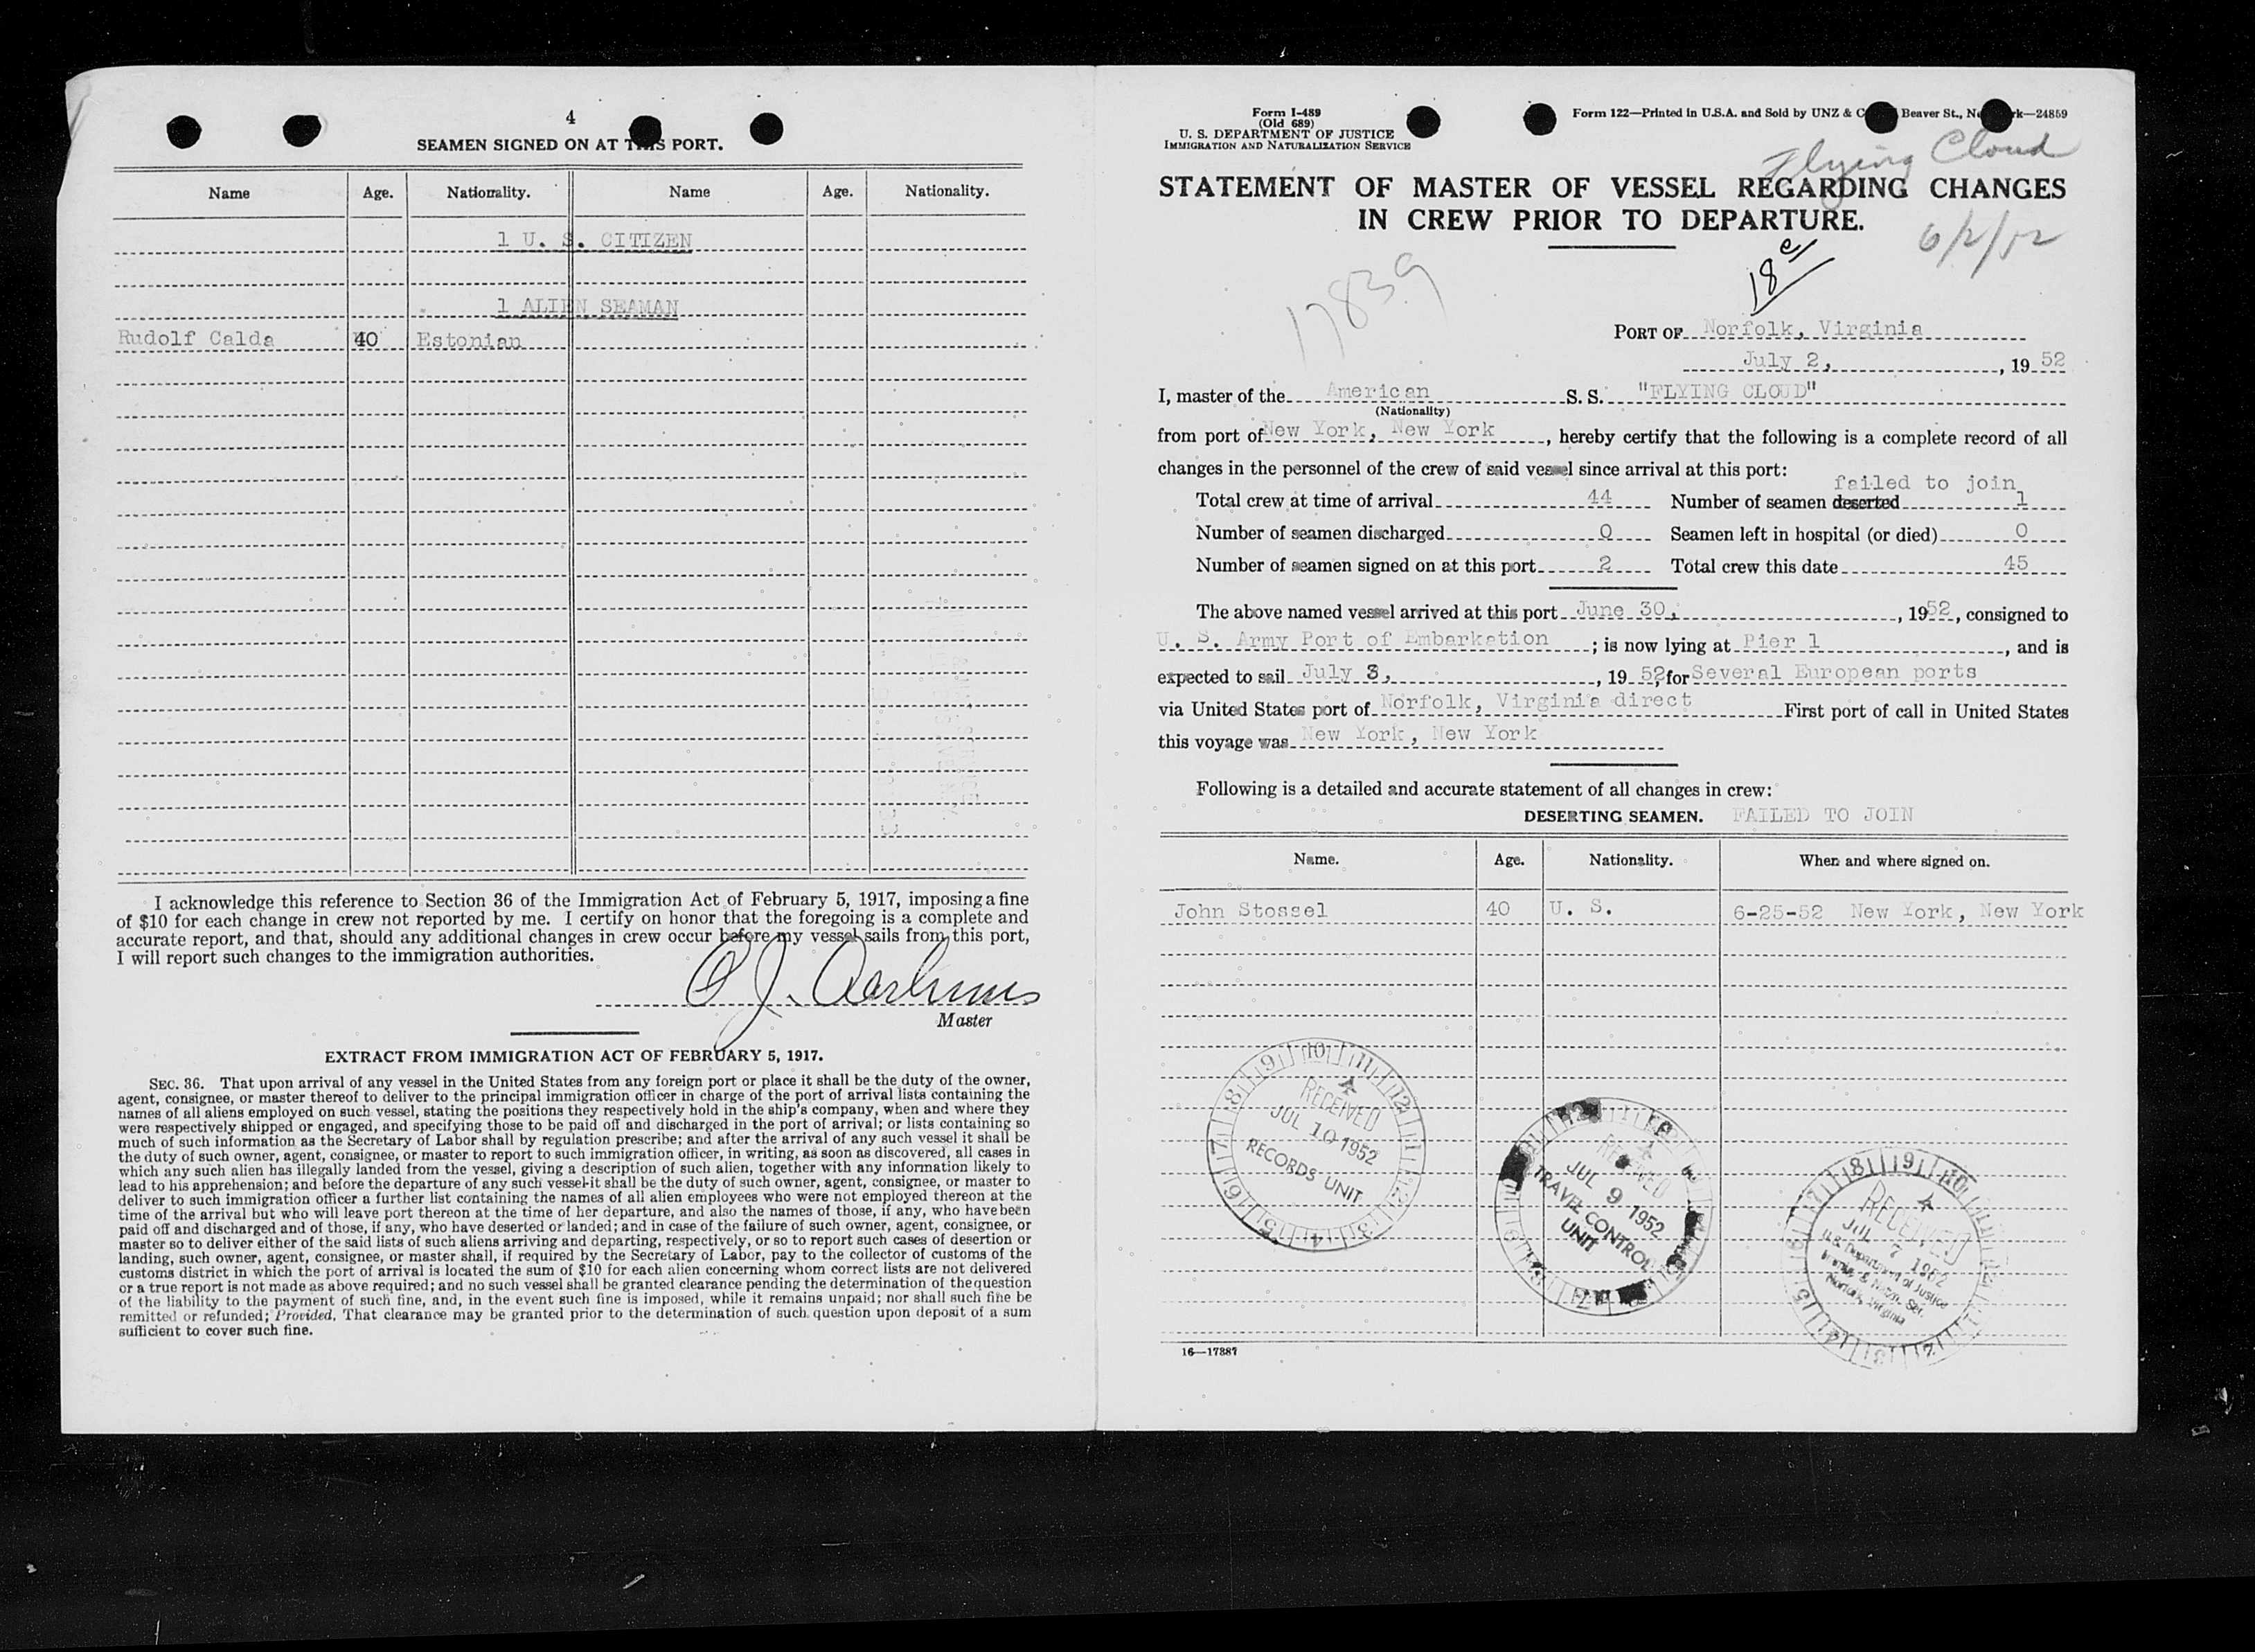 4
SEAMEN SIGNED ON AT THIS PORT.
Name Age. Nationality. Name Age. Nationality.
1 U. S. CITIZEN
1 ALIEN SEAMAN
Rudolf Calda 40 Estonian
I acknowledge this reference to Section 36 of the Immigration Act of February 5, 1917, imposing a fine
of $10 for each change in crew not reported by me. I certify on honor that the foregoing is a complete and
accurate report, and that, should any additional changes in crew occur before my vessel sails from this port,
I will report such changes to the immigration authorities.
Master
EXTRACT FROM IMMIGRATION ACT OF FEBRUARY 5, 1917.
SEC. 36. That upon arrival of any vessel in the United States from any foreign port or place it shall be the duty of the owner,
agent, consignee, or master thereof to deliver to the principal immigration officer in charge of the port of arrival lists containing the
names of all aliens employed on such vessel, stating the positions they respectively hold in the ship's company, when and where they
were respectively shipped or engaged, and specifying those to be paid off and discharged in the port of arrival; or lists containing so
much of such information as the Secretary of Labor shall by regulation prescribe; and after the arrival of any such vessel it shall be
the duty of such owner, agent, consignee, or master to report to such immigration officer, in writing, as soon as discovered, all cases in
which any such alien has illegally landed from the vessel, giving a description of such alien, together with any information likely to
lead to his apprehension; and before the departure of any such vessel it shall be the duty of such owner, agent, consignee, or master to
deliver to such immigration officer a further list containing the names of all alien employees who were not employed thereon at the
time of the arrival but who will leave port thereon at the time of her departure, and also the names of those, if any, who have been
paid off and discharged and of those, if any, who have deserted or landed; and in case of the failure of such owner, agent, consignee, or
master so to deliver either of the said lists of such aliens arriving and departing, respectively, or so to report such cases of desertion or
landing, such owner, agent, consignee, or master shall, if required by the Secretary of Labor, pay to the collector of customs of the
customs district in which the port of arrival is located the sum of $10 for each alien concerning whom correct lists are not delivered
or a true report is not made as above required; and no such vessel shall be granted clearance pending the determination of the question
of the liability to the payment of such fine, and, in the event such fine is imposed, while it remains unpaid; nor shall such fine be
remitted or refunded; Provided, That clearance may be granted prior to the determination of such question upon deposit of a sum
sufficient to cover such fine.
Form I-489
(Old 689)
U. S. DEPARTMENT OF JUSTICE
IMMIGRATION AND NATURALIZATION SERVICE
Form 122—Printed in U.S.A. and Sold by UNZ & C Beaver St., Ne rk—24859
Flying Cloud
STATEMENT OF MASTER OF VESSEL REGARDING CHANGES
IN CREW PRIOR TO DEPARTURE.
6/2/52
18e
17839
PORT OF Norfolk, Virginia
July 2, , 19 52
I, master of the American S. S. "FLYING CLOUD"
(Nationality)
from port of New York, New York , hereby certify that the following is a complete record of all
changes in the personnel of the crew of said vessel since arrival at this port:
failed to join
Total crew at time of arrival 44 Number of seamen deserted 1
Number of seamen discharged 0 Seamen left in hospital (or died) 0
Number of seamen signed on at this port 2 Total crew this date 45
The above named vessel arrived at this port June 30, , 19 52, consigned to
U. S. Army Port of Embarkation ; is now lying at Pier 1 , and is
expected to sail July 3, , 19 52, for Several European ports
via United States port of Norfolk, Virginia direct First port of call in United States
this voyage was New York, New York
Following is a detailed and accurate statement of all changes in crew:
DESERTING SEAMEN. FAILED TO JOIN
Name. Age. Nationality. When and where signed on.
John Stossel 40 U. S. 6-25-52 New York, New York
RECEIVED
JUL 10 1952
RECORDS UNIT
RECEIVED
JUL 9 1952
TRAVEL CONTROL
UNIT
RECEIVED
JUL 7 1952
U.S. Department of Justice
Immig. & Natzn. Ser.
Norfolk, Virginia
16—17387